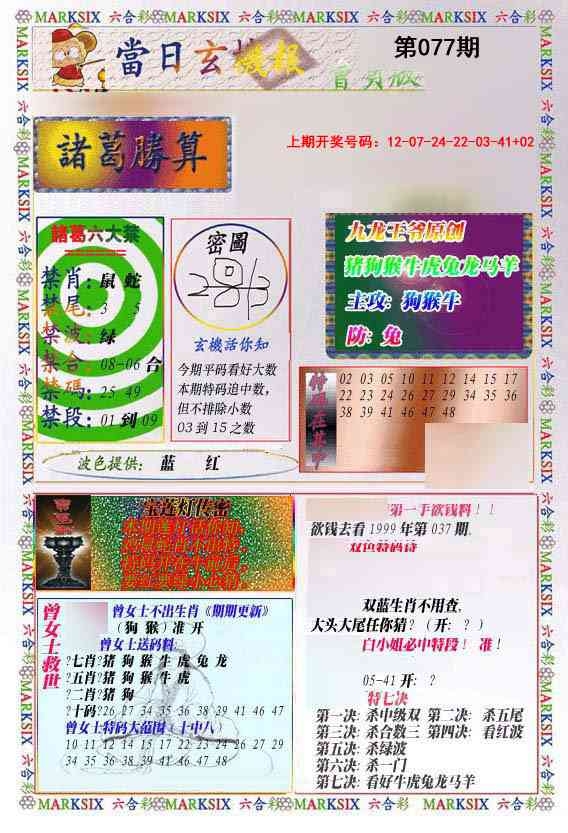 MARKSIX 六合彩 MARKSIX 六合彩 MARKSIX 六合彩 MARKSIX 六合彩
當日玄機報
第077期
諸葛勝算
上期开奖号码：12-07-24-22-03-41+02
諸葛六大禁
禁肖：鼠 蛇
禁尾：3 5
禁波：绿
禁合：08-06 合
禁碼：25 49
禁段：01 到 09
密圖
玄機活你知
今期平码看好大数
本期特码追中数，
但不排除小数
03 到 15 之数
九龙王爷原创
猪狗猴牛虎兔龙马羊
主攻：狗猴牛
防：兔
特码在其中
02 03 05 10 11 12 14 15 17
22 23 24 26 27 29 34 35 36
38 39 41 46 47 48
波色提供： 蓝 红
宝莲灯传密
曾女士救世
曾女士不出生肖《期期更新》
（狗 猴）准 开
曾女士送码料
?七肖?猪 狗 猴 牛 虎 兔 龙
?五肖?猪 狗 猴 牛 虎
?二肖?猪 狗
?十码?26 27 34 35 36 38 39 41 46 47
曾女士特码大范围（十中八）
10 11 12 14 15 17 22 23 24 26 27 29
34 35 36 38 39 41 46 47 48
第一手欲钱料！！
欲钱去看 1999 年第 037 期.
双色特码诗
双蓝生肖不用查,
大头大尾任你猜? (开: ? )
白小姐必中特段！ 准！
05-41 开: ?
特七决
第一决: 杀中级双 第二决: 杀五尾
第三决: 杀合数三 第四决: 看红波
第五决: 杀绿波
第六决: 杀一门
第七决: 看好牛虎兔龙马羊
MARKSIX 六合彩 MARKSIX 六合彩 MARKSIX 六合彩 MARKSIX 六合彩